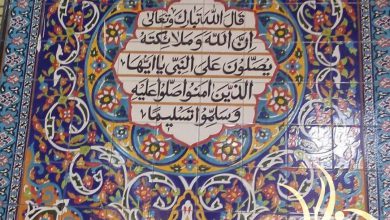 قَالَ اللهُ تَبَارَكَ وَتَعَالىٰ
اِنَّ اللهَ وَمَلَائِكَتَهُ
يُصَلُّونَ عَلَى النَّبِيِّ يَا اَيُّهَا
الَّذِينَ امَنُوا صَلُّوا عَلَيْهِ
وَسَلِّمُوا تَسْلِيمًا